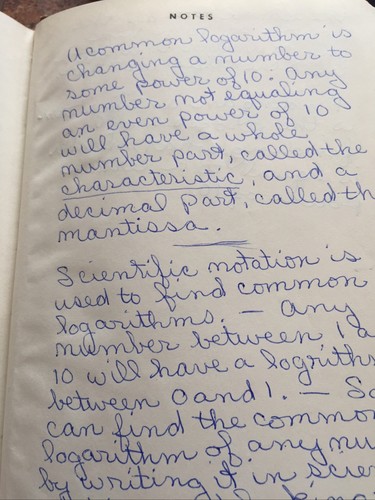 NOTES
A common logarithm is
changing a number to
some power of 10. Any
number not equaling
an even power of 10
will have a whole
number part, called the
characteristic, and a
decimal part, called th
mantissa.
Scientific notation is
used to find common
logarithms. — Any
number between 1 a
10 will have a logrith
between 0 and 1. — So
can find the commo
logarithm of any nu
by writing it in scie